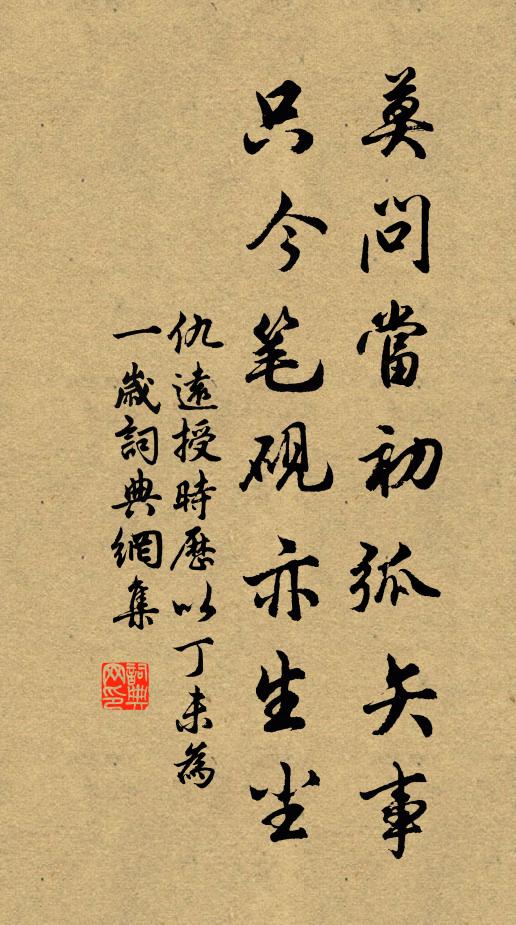 莫問當初弧矢事
只今笔硯亦生尘
仇遠授時歷以丁未為
一歲詞典網集
詞典網印